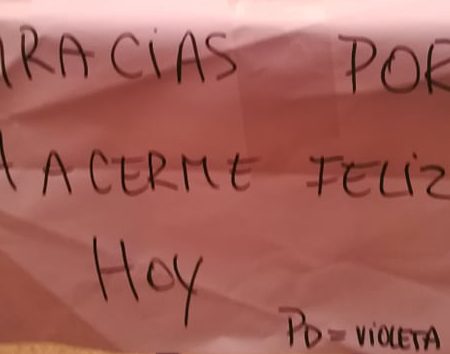 GRACIAS POR
HACERME FELIZ
HOY
PD = VIOLETA